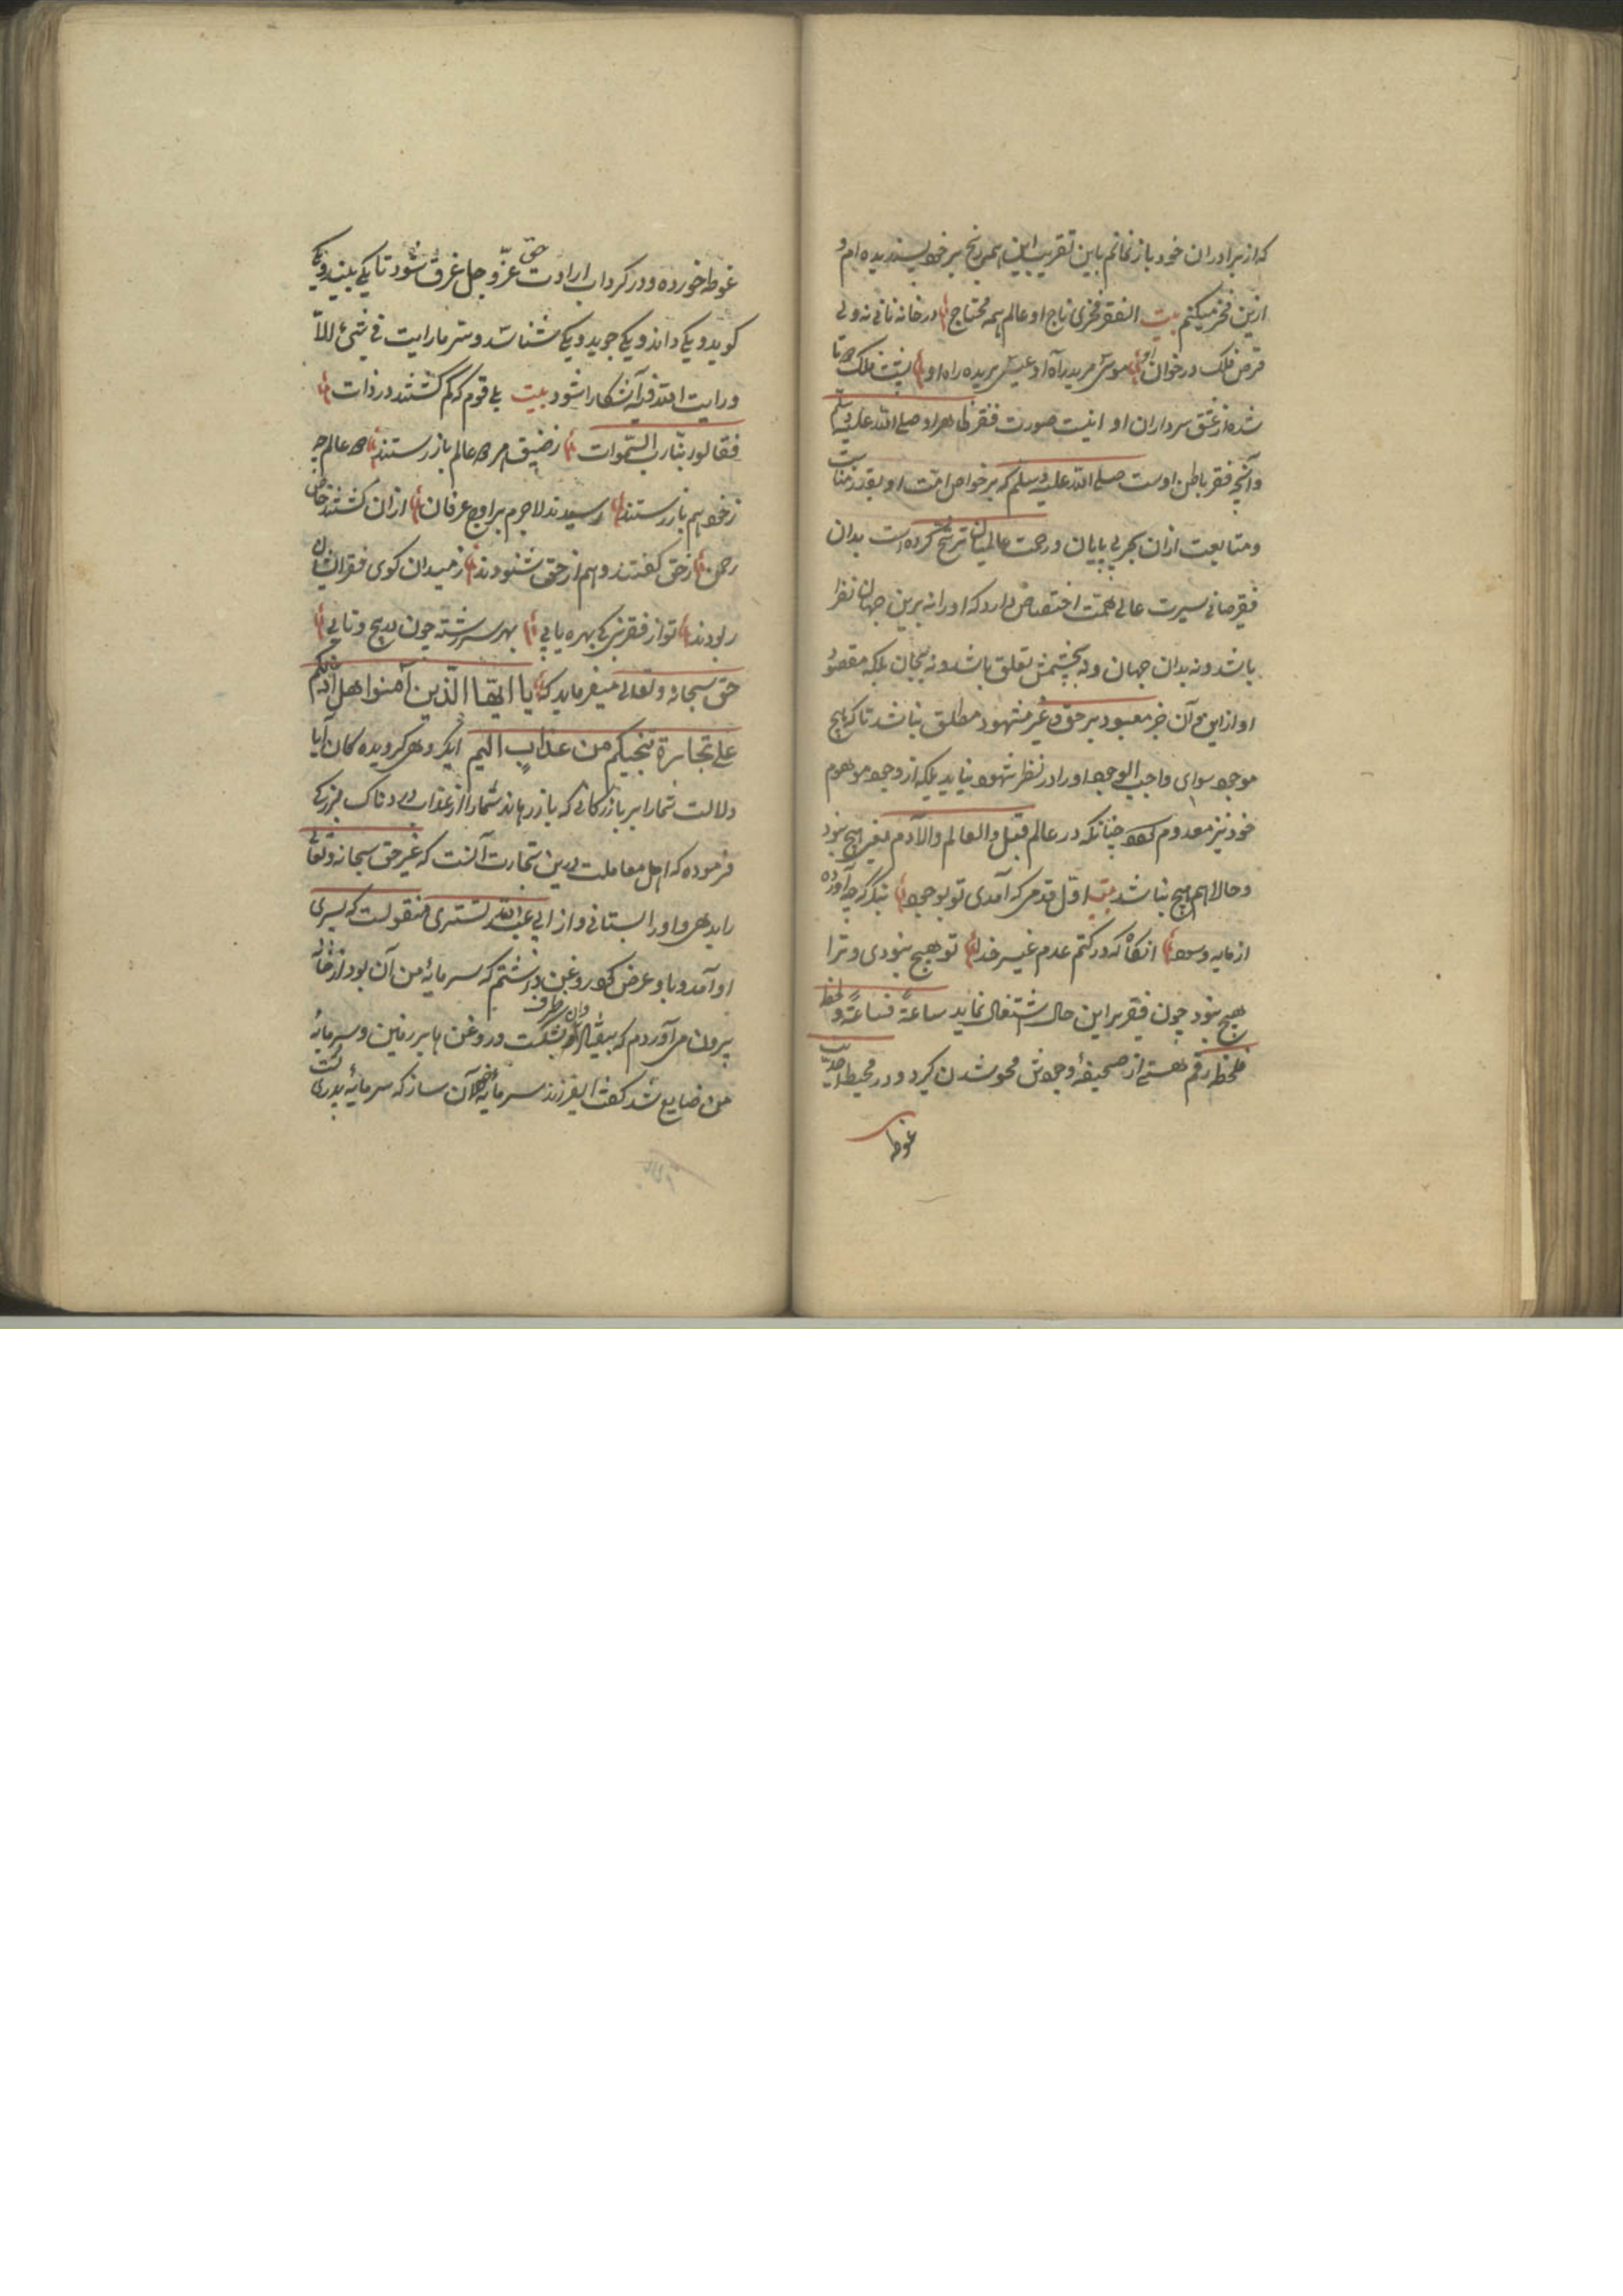 که از برادران خود باز نمانم باین تقریب این همه رنج بر خود پسندیده ام و
ازین فخر میکنم بیت الفقر فخری تاج او عالم همه محتاج او در خانه نانی نه ولی
قرص فلک در خوان او موسی مرید راه او عیسی بریده راه او پشت فلک دوتا
شده از عشق سرداران او اینست صورت فقر ظاهر او صلی الله علیه وسلم
وآنچه فقر باطن اوست صلی الله علیه وسلم که بر خواص امت او بقدر مناسبت
ومتابعت ازان بحر بی پایان ورحمت عالمیان ترشح کرده است بدان
فقر صافی سیرت عالی همت اختصاص دارد که اورا نه برین جهان نظر
باشد ونه بدان جهان ونه بچشمش تعلق باشد ونه بجان بلکه مقصود
او ازاین وآن جز معبود برحق وغیر مشهود مطلق نباشد تا که هیچ
موجود سوای واجب الوجود اورا در نظر شهود نیاید بلکه از وجود موهوم
خود نیز معدوم گردد چنانکه در عالم قبل والعالم والآدم یعنی هیچ نبود
وحالا هم هیچ نباشد بیت اول قدمی که آمدی تو بوجود بنگر که چه آورده
از مایه وسود آنگاه که در کتم عدم غیر خدا تو هیچ نبودی وترا
هیچ نبود چون فقیر براین حال اشتغال نماید ساعة فساعة ولحظه
فلحظه رقم هستی از صحیفهٔ وجودش محو شدن گیرد ودر محیط احدیت
غوطه
غوطه خورده ودر گرداب ارادت حق عز وجل غرق شود تا یکی بیند ویکی
گوید ویکی داند ویکی جوید ویکی شناسد وسر مارایت فی شیء الا
ورایت الله فیه آشکارا شود بیت بلی قومی که گم گشتند در ذات
فقالوا ربنا رب السموات ز ضیق هر دو عالم باز رستند دو عالم چه
ز خود هم باز رستند رسیدند لاجرم بر اوج عرفان ازان گشتند خاص
رحمن ز حق گفتند وهم از حق شنودند ز میدان گوی فقر ایشان
ربودند تو از فقر نبی کی بهره یابی بهر سررشته چون در پیچ وتابی
حق سبحانه وتعالی میفرماید که یا ایها الذین آمنوا هل ادلکم
علی تجارة تنجیکم من عذاب الیم ای گروهی گرویده گان آیا
دلالت شمارا بر بازرگانی که باز رهاند شمارا از عذاب دردناک بزرگی
فرموده که اصل معاملت درین تجارت آنست که غیر حق سبحانه وتعالی
را بدهی واورا بستانی واز ابی عبد الله تستری منقولست که پسری
او آمد وباو عرض کرد روغن داشتم که سرمایهٔ من آن بود از خانه
بیرون می آوردم که بیفتاد وآن ظرف بشکست وروغن بر زمین وسرمایهٔ
من ضایع شد گفت ای فرزند سرمایه خود آن ساز که سرمایهٔ پدر تست